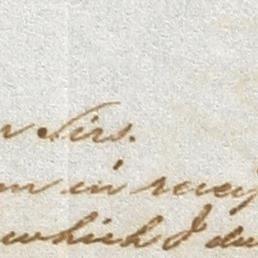 r Sirs.
am in receip
which I du